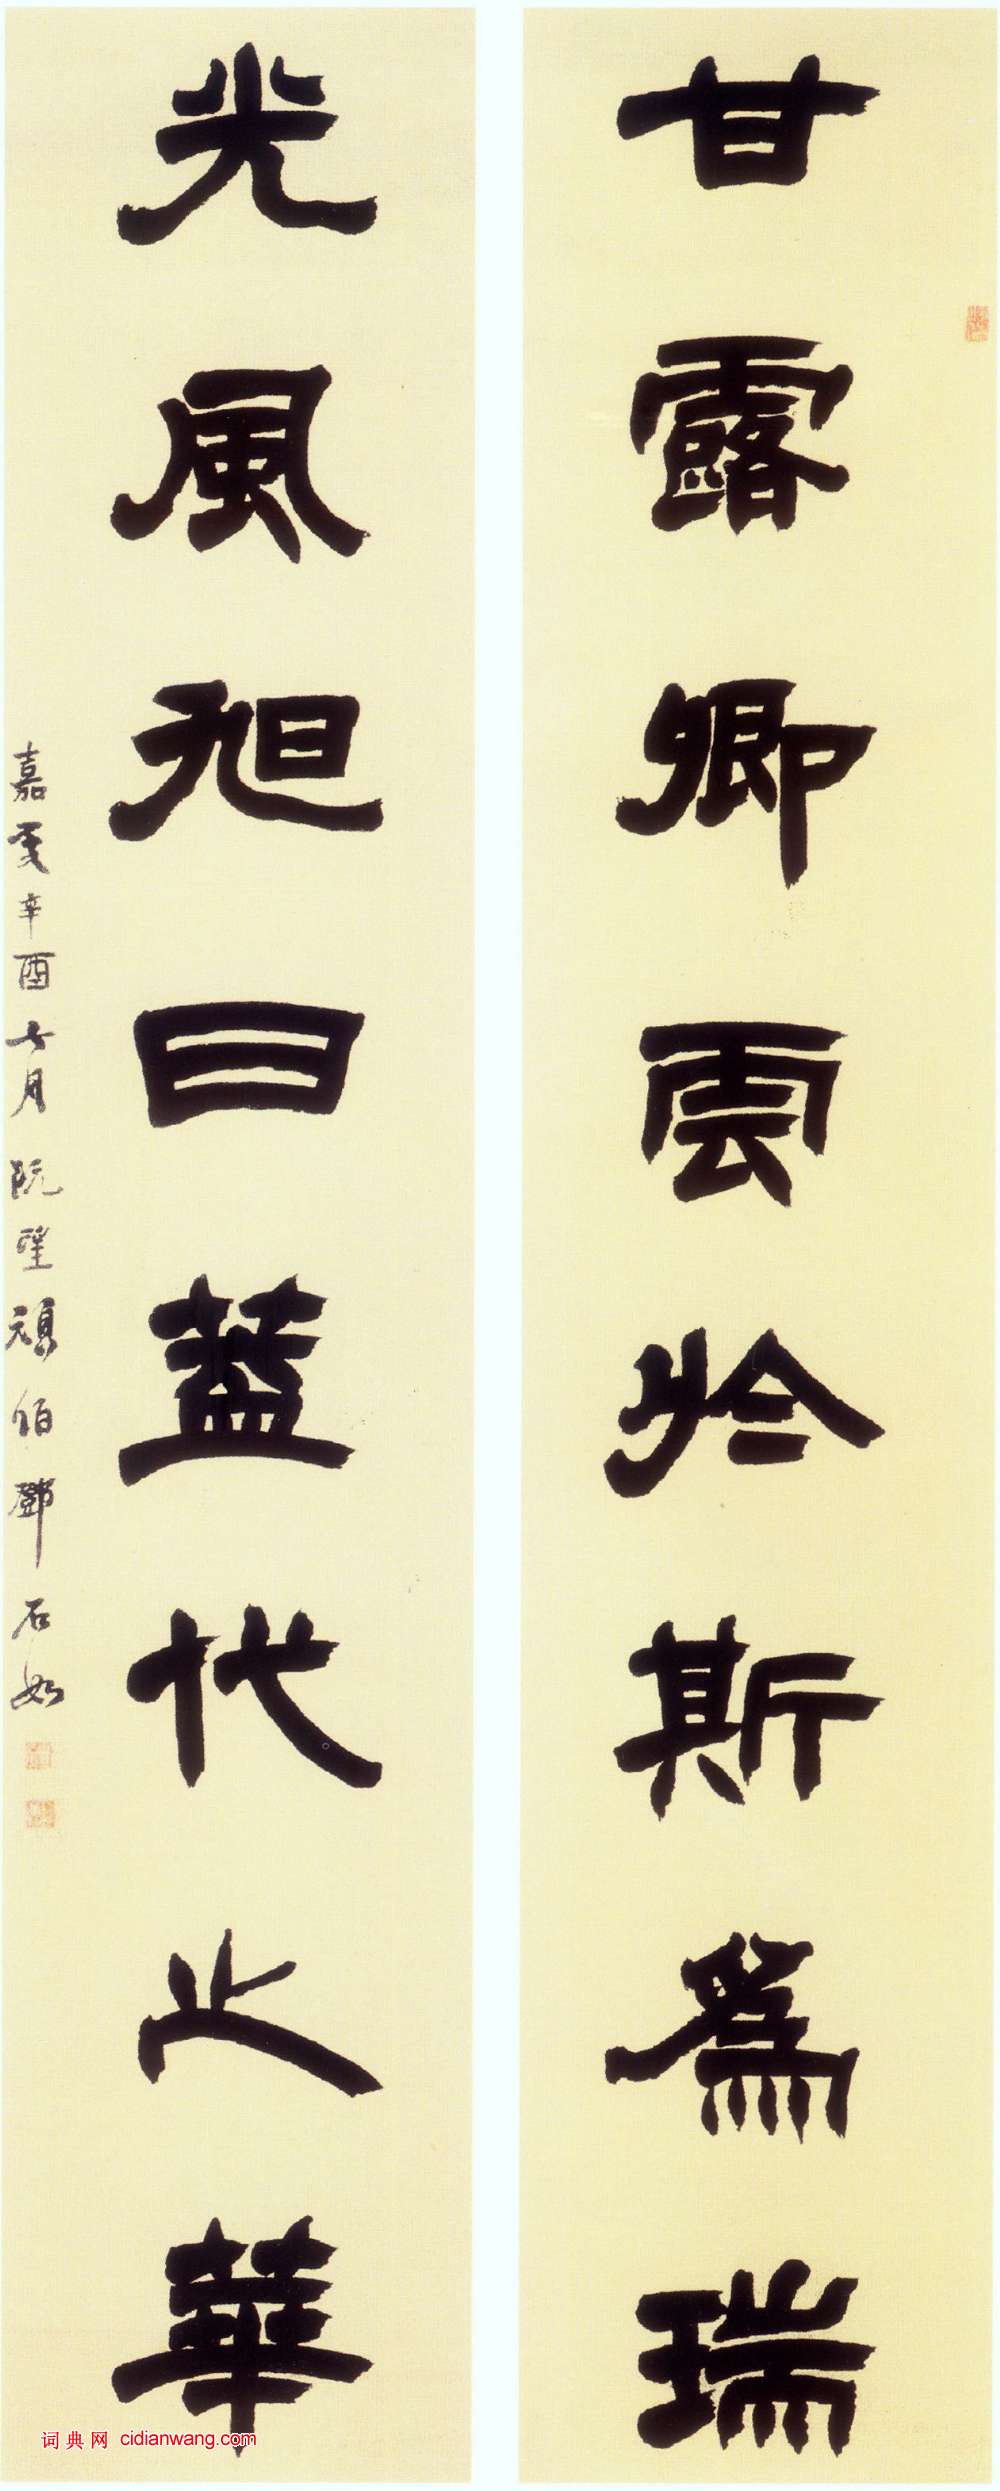 甘露卿雲於斯為瑞
光風旭日蓋代之華
嘉慶辛酉七月既望頑伯鄧石如
词典网 cidianwang.com